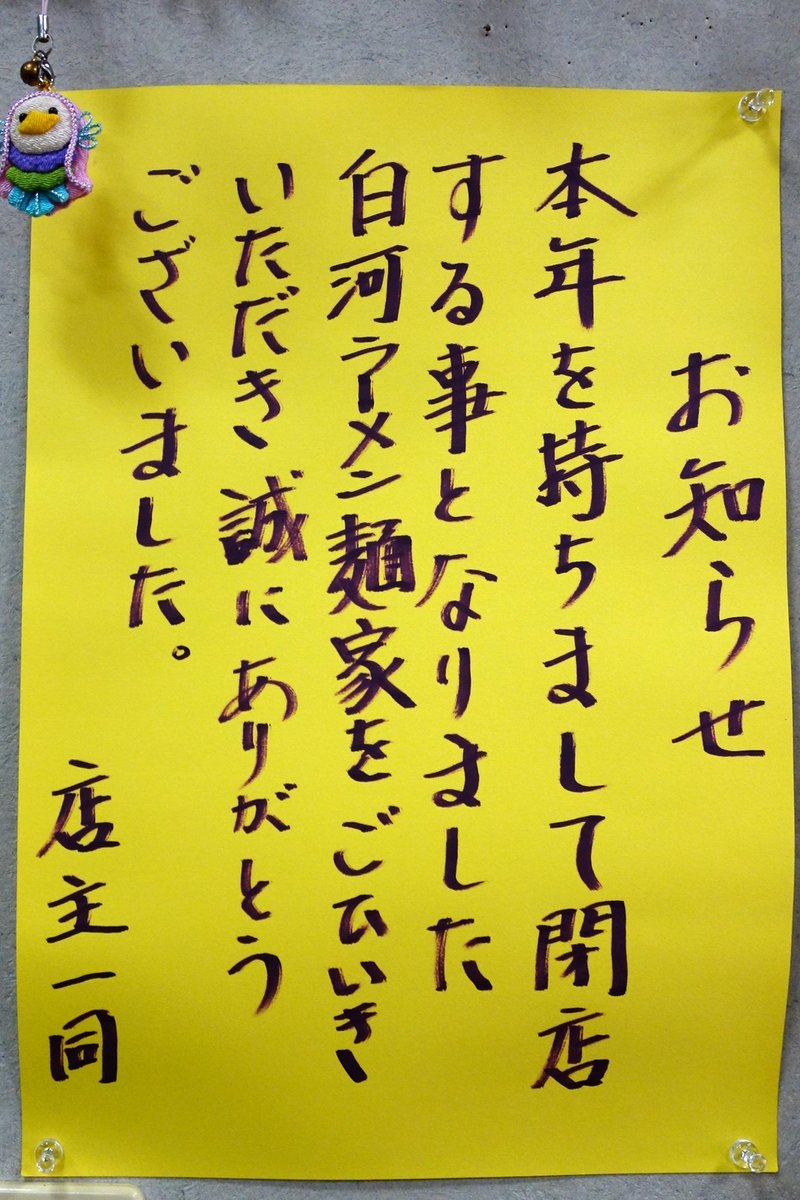 お知らせ
本年を持ちまして閉店
する事となりました
白河ラーメン麺家をごひいき
いただき誠にありがとう
ございました。
店主一同